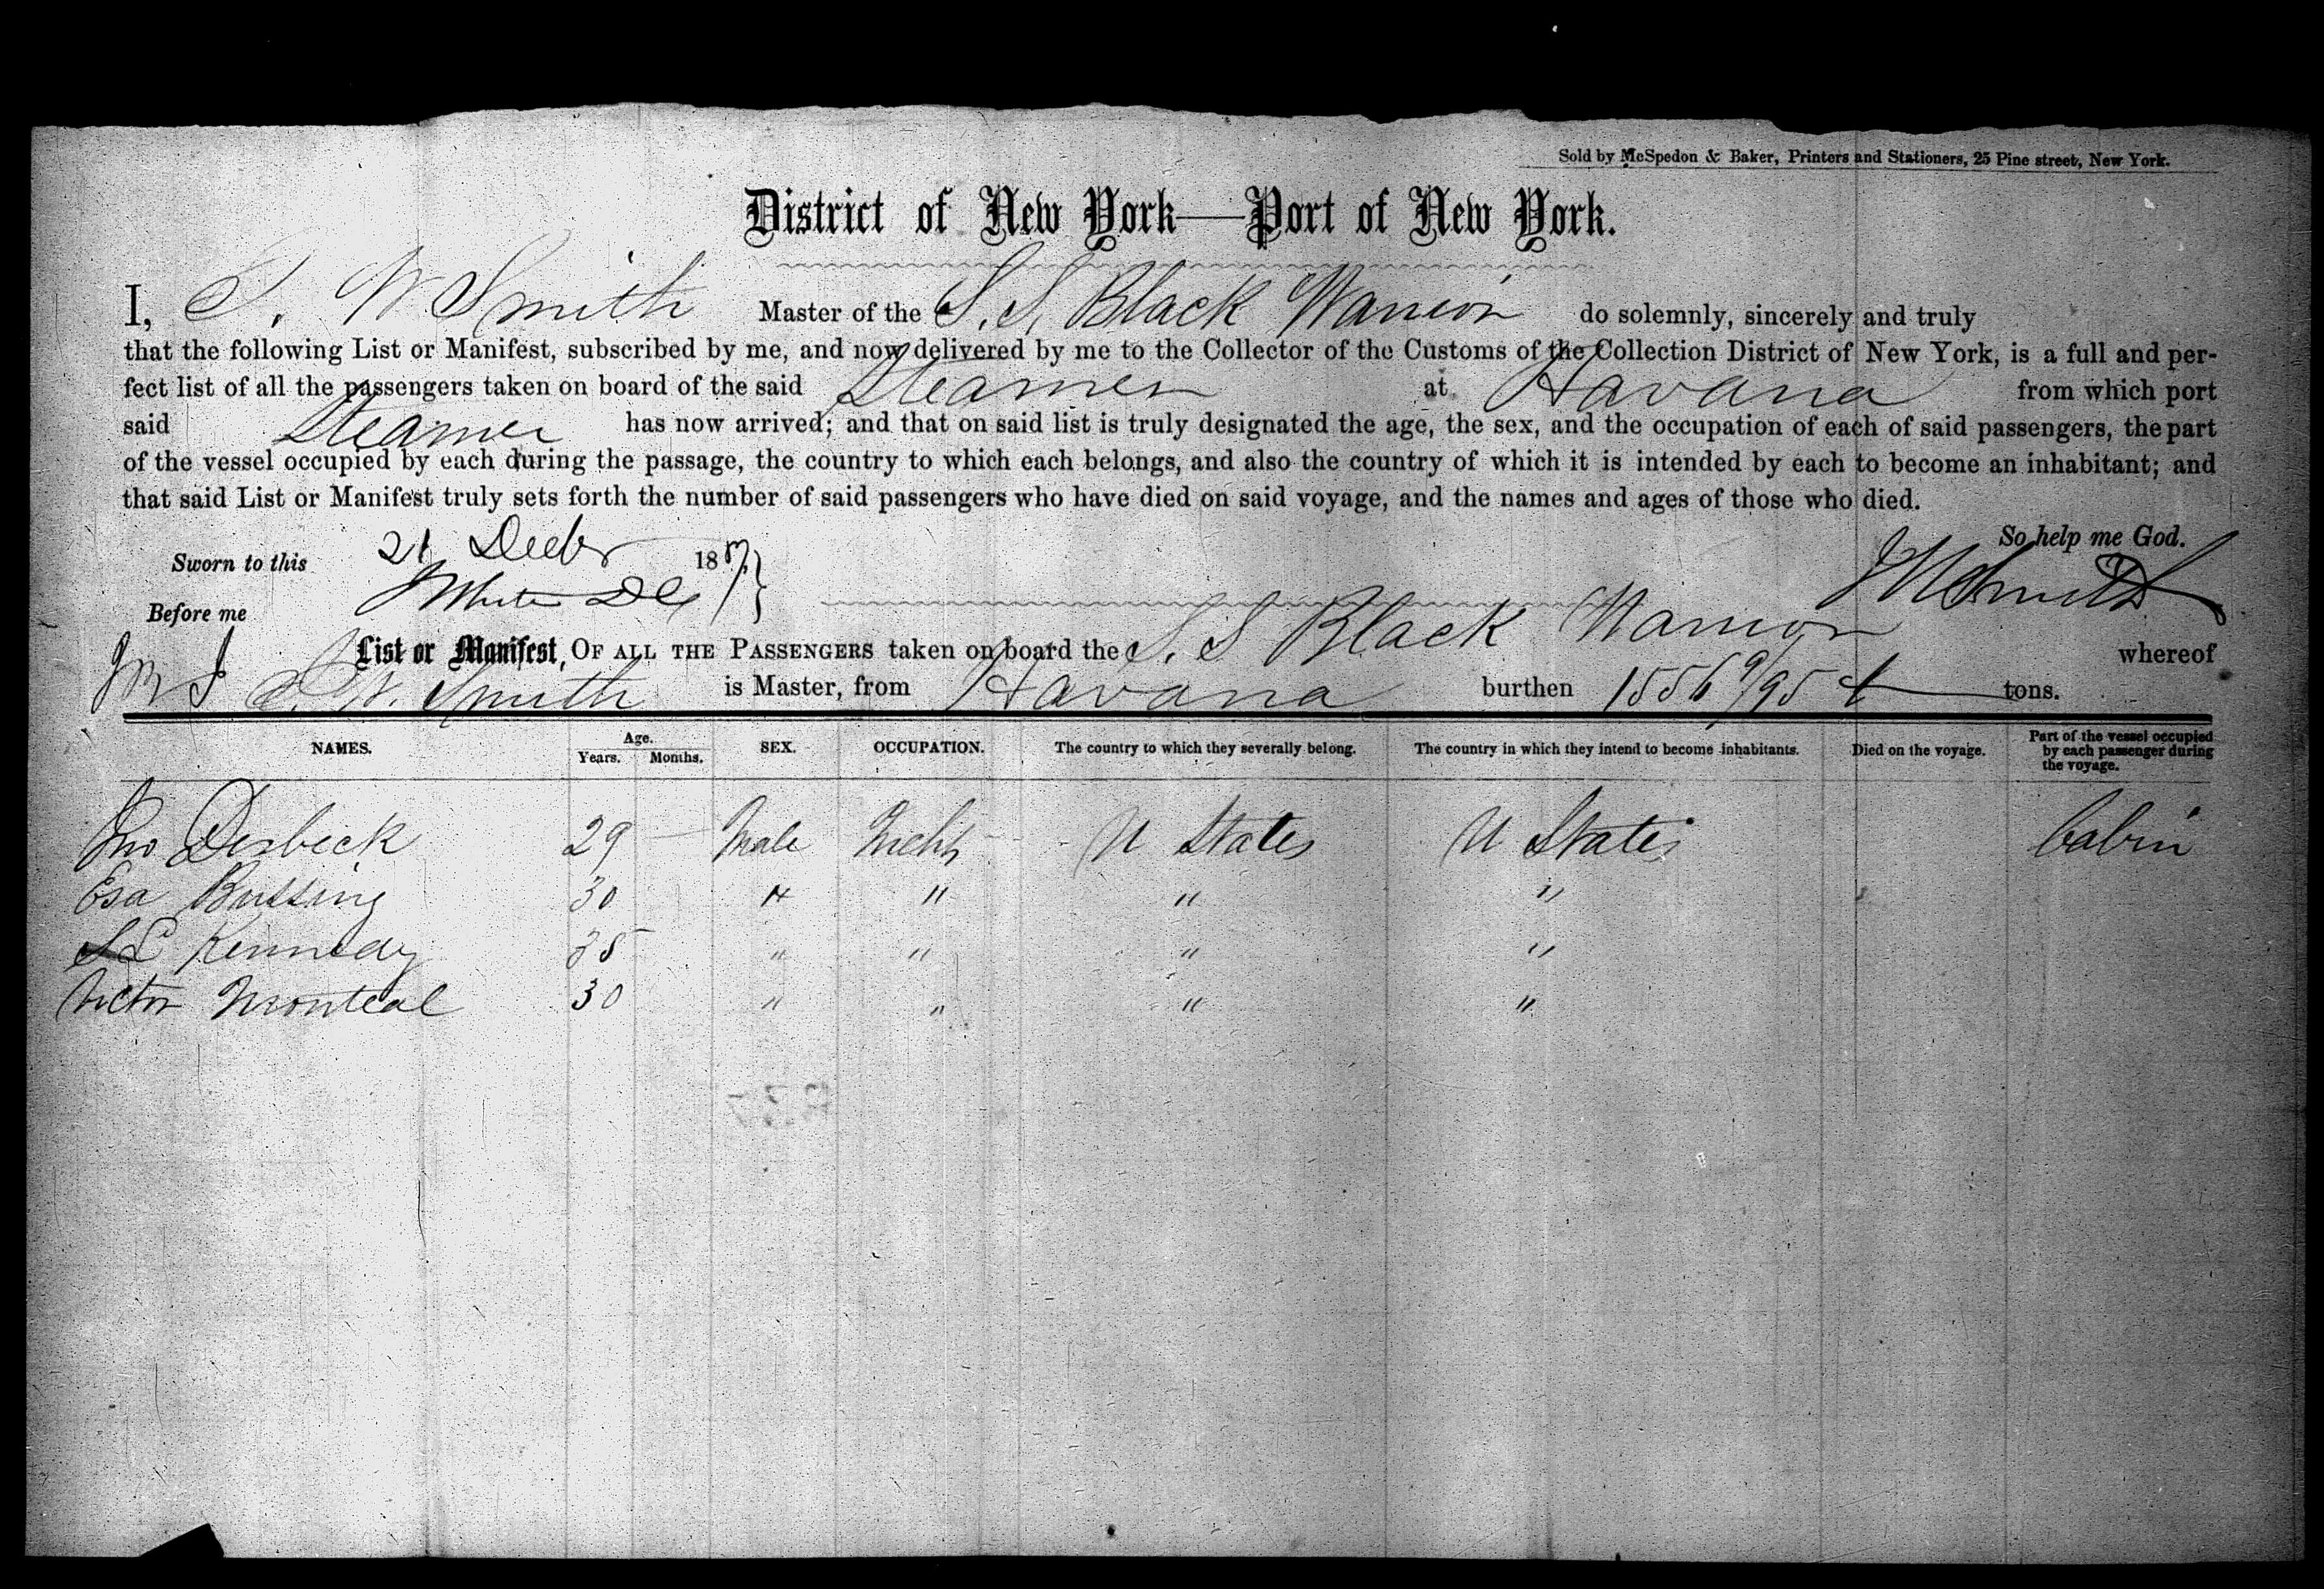 Sold by McSpedon & Baker, Printers and Stationers, 25 Pine street, New York.
District of New York—Port of New York.
I, W Smith Master of the S. S. Black Warrior do solemnly, sincerely and truly
that the following List or Manifest, subscribed by me, and now delivered by me to the Collector of the Customs of the Collection District of New York, is a full and per-
fect list of all the passengers taken on board of the said Steamer at Havana from which port
said Steamer has now arrived; and that on said list is truly designated the age, the sex, and the occupation of each of said passengers, the part
of the vessel occupied by each during the passage, the country to which each belongs, and also the country of which it is intended by each to become an inhabitant; and
that said List or Manifest truly sets forth the number of said passengers who have died on said voyage, and the names and ages of those who died.
So help me God.
Sworn to this 21 Decbr 1857
Before me
List or Manifest, OF ALL THE PASSENGERS taken on board the S. S Black Warrior whereof
W. Smith is Master, from Havana burthen 1556 9/95 t tons.
NAMES. Age. Years. Months. SEX. OCCUPATION. The country to which they severally belong. The country in which they intend to become inhabitants. Died on the voyage. Part of the vessel occupied by each passenger during the voyage.
Jno Desbeck 29 Male U States U States Cabin
Esa Bussing 30 " " " "
L Kennedy 35 " " " "
Victor Monteal 30 " " " "